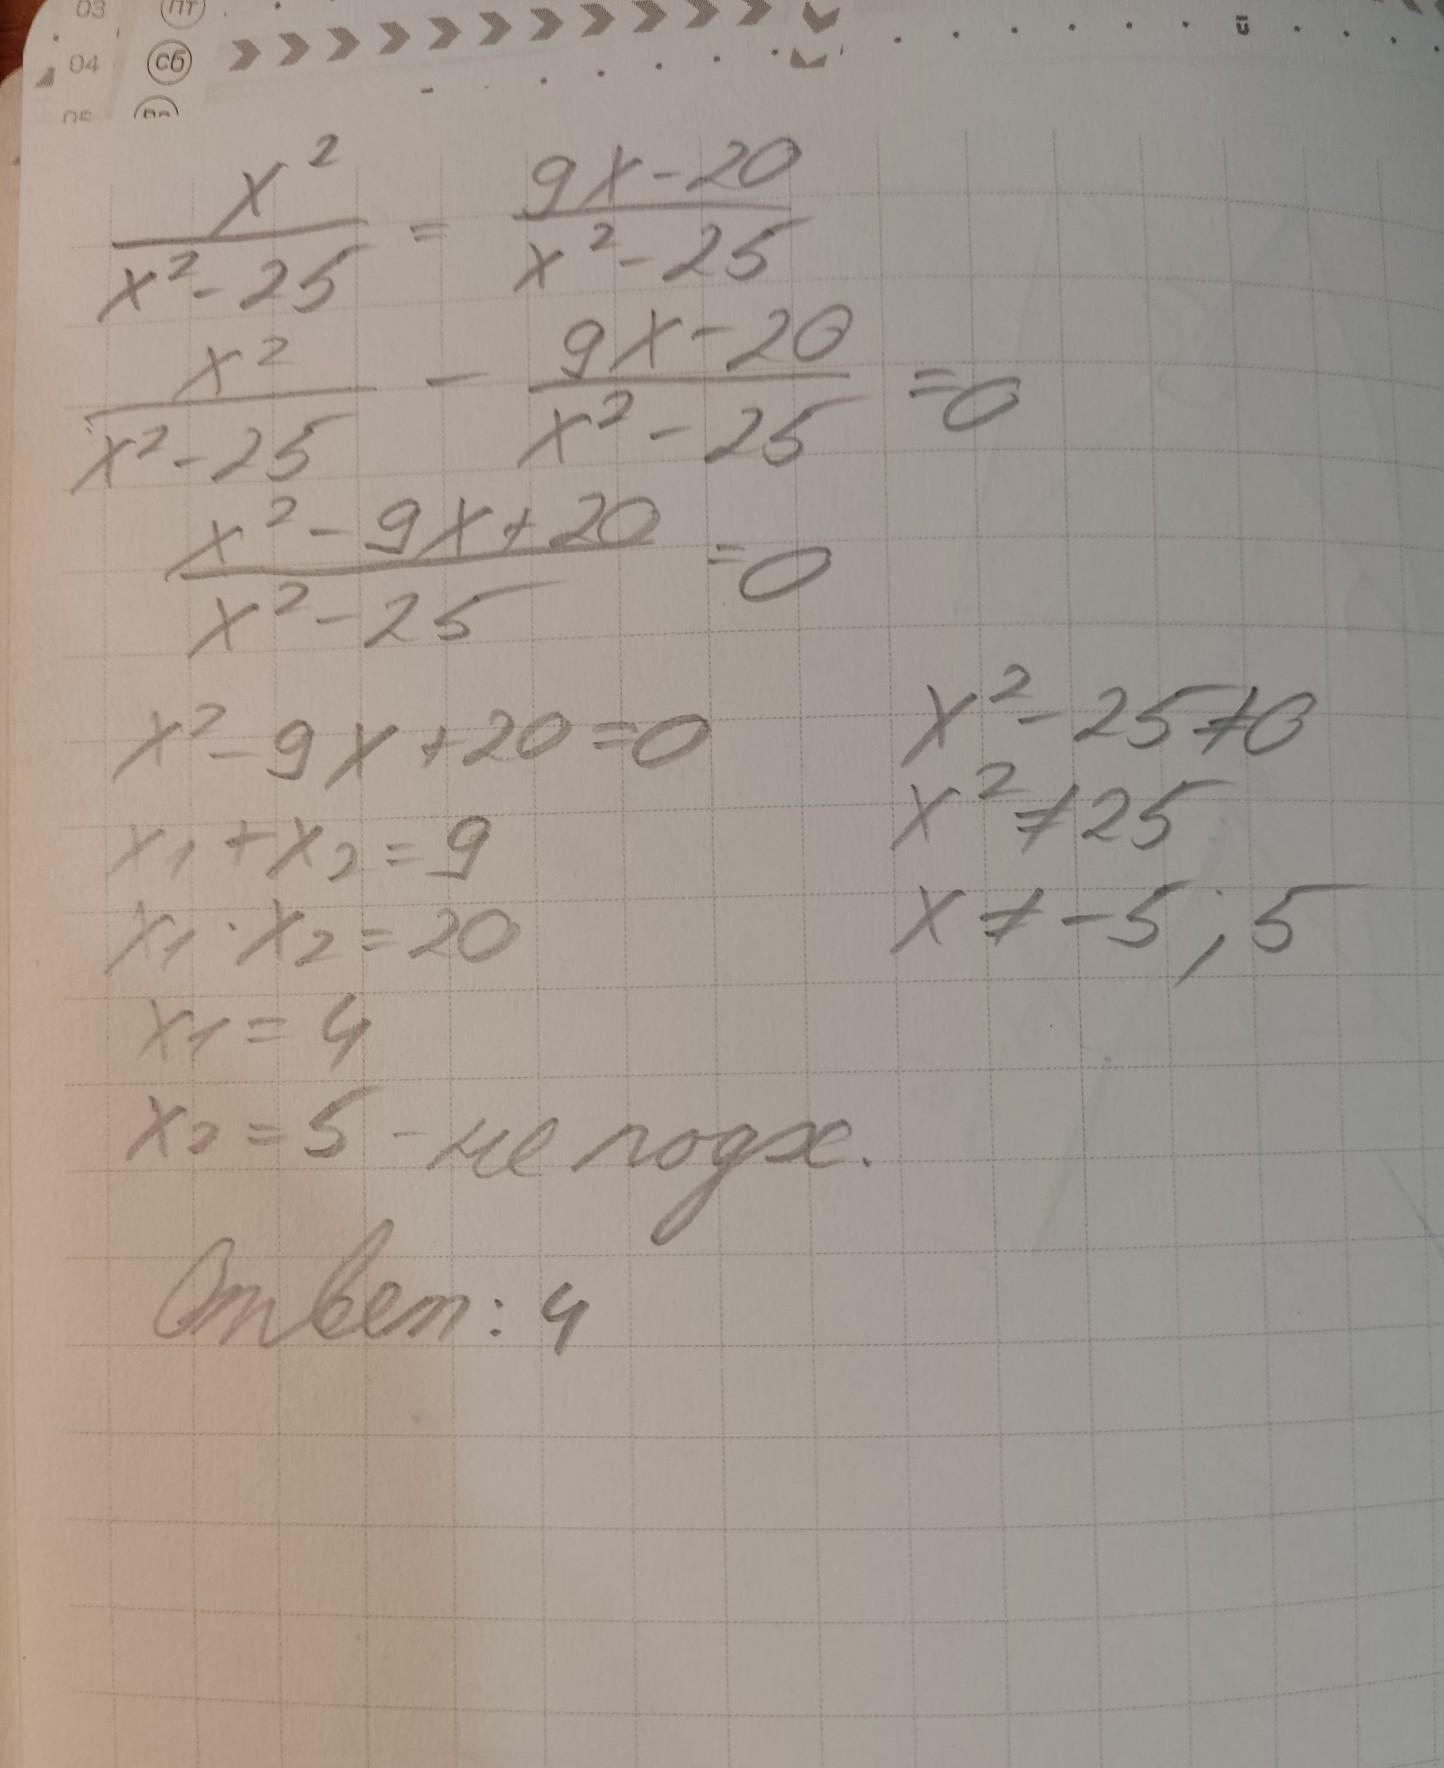 03 ПТ
04 сб
x²/(x²-25) = (9x-20)/(x²-25)
x²/(x²-25) - (9x-20)/(x²-25) = 0
(x²-9x+20)/(x²-25) = 0
x²-9x+20=0
x₁+x₂=9
x₁·x₂=20
x₁=4
x₂=5 - не подх.
x²-25≠0
x²≠25
x≠-5;5
Ответ: 4